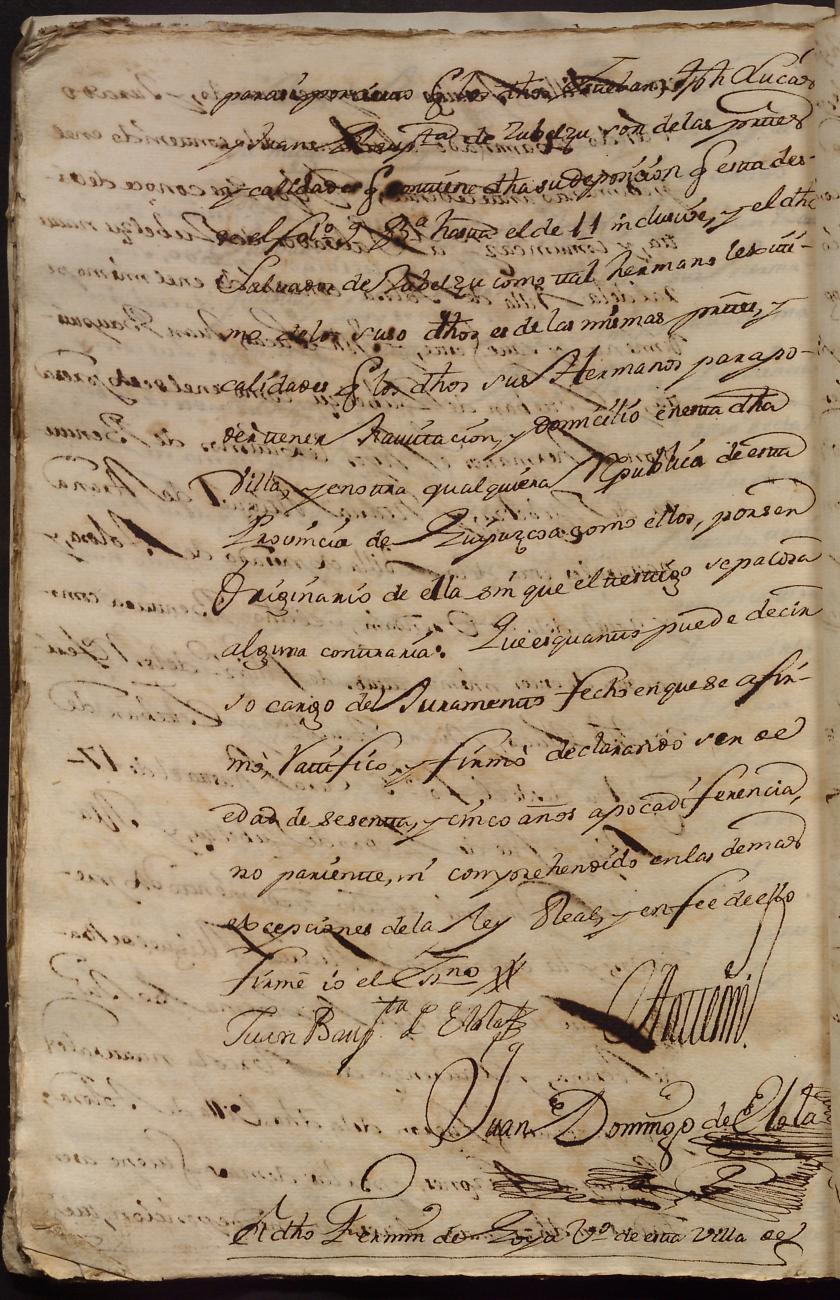 q los dhos Esteuan, Jph Lucas
y Juan Baupta de Zubelzu son de las partes
y calidades q contiene dha su deposicion q esta des-
de el folo 9 Ba hasta el de 11 inclusive, y el dho
Salvador de Zubelzu como tal hermano lexiti-
mo de los suso dhos es de las mismas partes, y
calidades q los dhos sus Hermanos para po-
der tener Avitacion, y domicilio en esta dha
Villa, y en otra qualquiera Republica de esta
Provincia de Guipuzcoa como ellos, por ser
Originario de ella sin que el testigo sepa cosa
alguna contraria: Que es quanto puede decir
so cargo del Juramento fecho en que se afir-
mo, Ratifico, y firmó declarando ser de
edad de sesenta, y cinco años a poca diferencia,
no pariente, ni comprehendido en las demas
excepciones de la Ley Real, y en fee de ello
firmé io el Esno
Juan Baupta de Elola
Ante mi
Juan Domingo de Elola
A dho Fermin de Loya Vo de esta Villa de